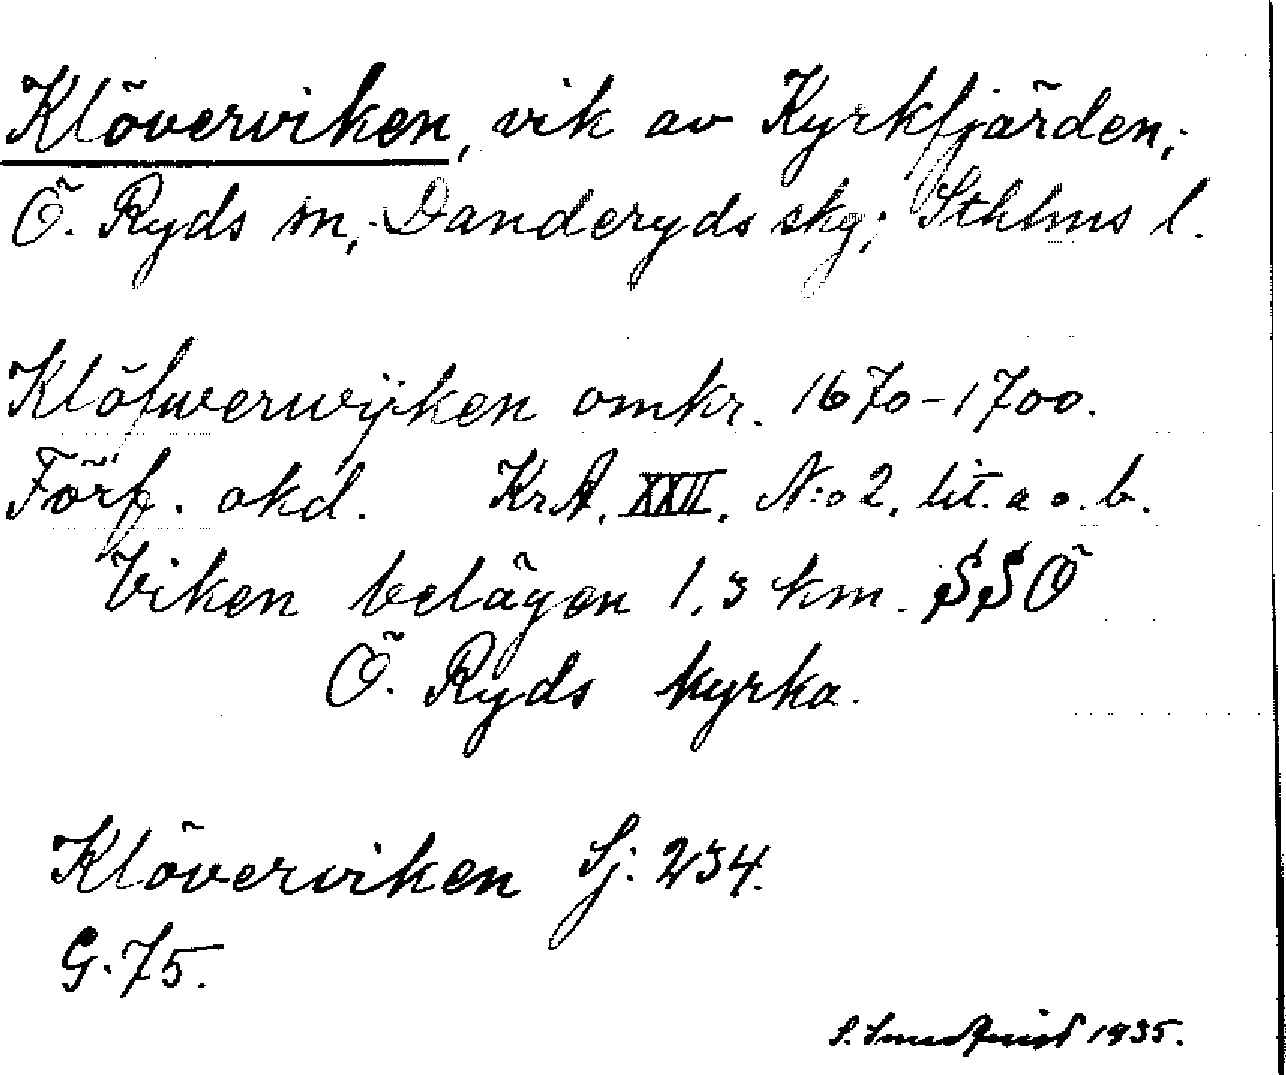 Klöverviken, vik av Kyrkfjärden,
Ö. Ryds sn, Danderyds skg, Sthlms l.
Klöfwerwijken omkr. 1670-1700.
Förf. okd. KrA. XXII. N:o 2. lit. a o. b.
Viken belägen 1,3 km. SSÖ
Ö. Ryds kyrka.
Klöverviken Sj: 234.
G. 75.
S. 1935.